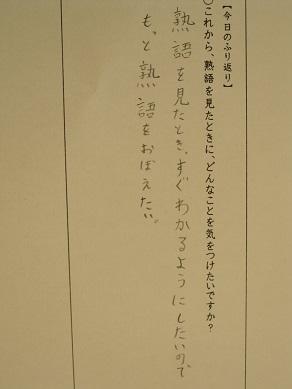 【今日のふり返り】
○これから、熟語を見たときに、どんなことを気をつけたいですか？
熟語を見たとき、すぐわかるようにしたいので
もっと熟語をおぼえたい。